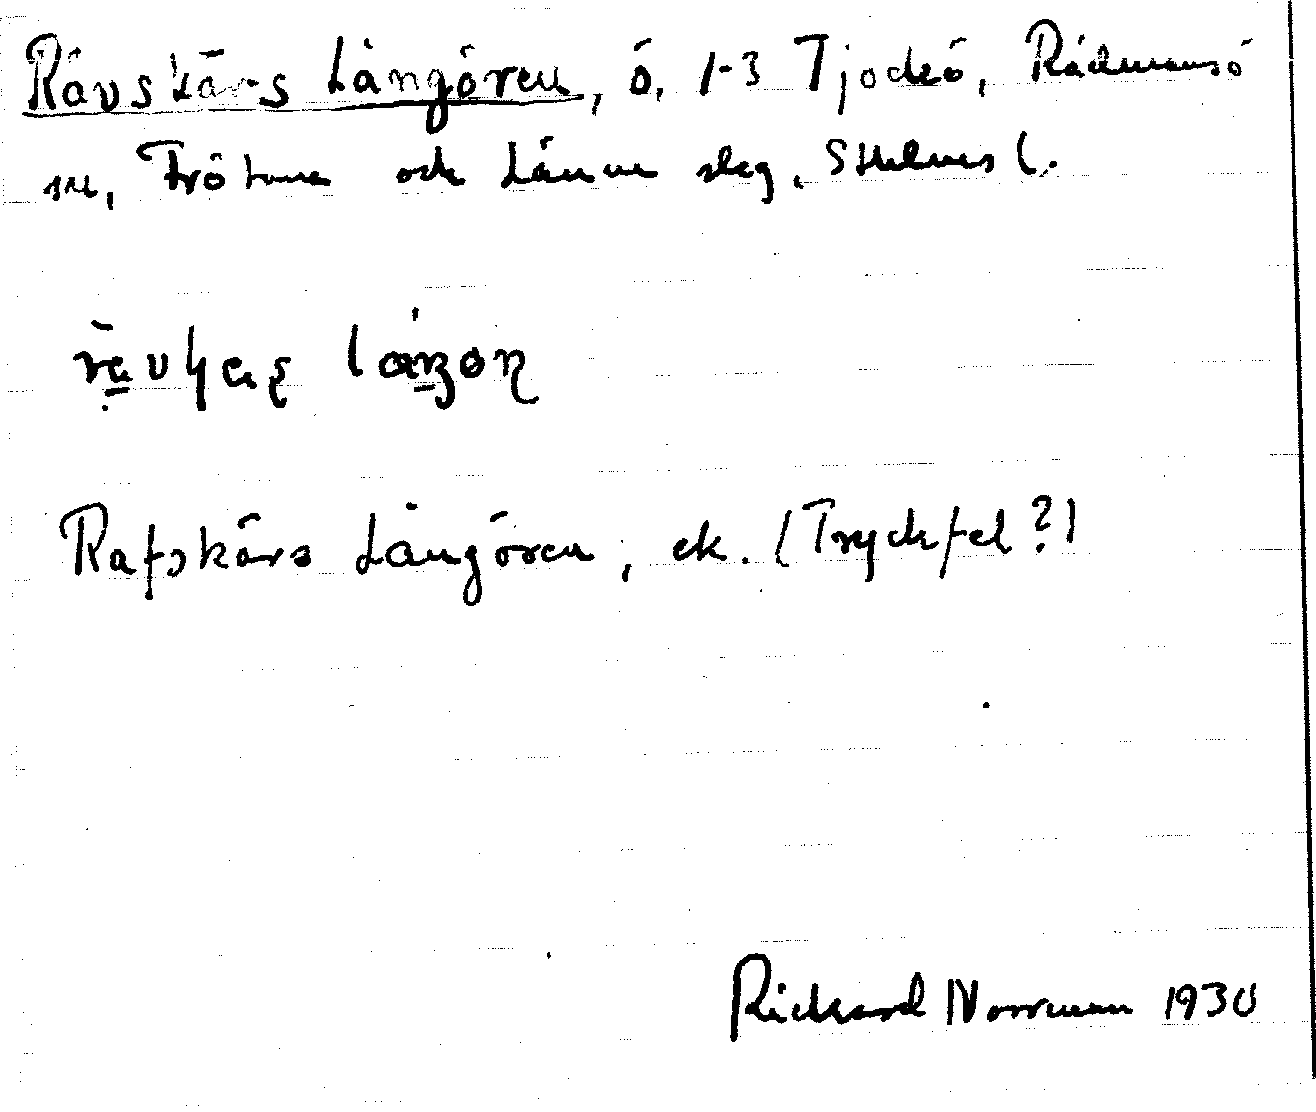 Rävskärs Långören, ö, 1-3 Tjockö, Rådmansö
sn, Frötuna och Länna slg, Sthlms l.
Rafskärs Långören, ek. (Tryckfel?)
Rickard Norrman 1930